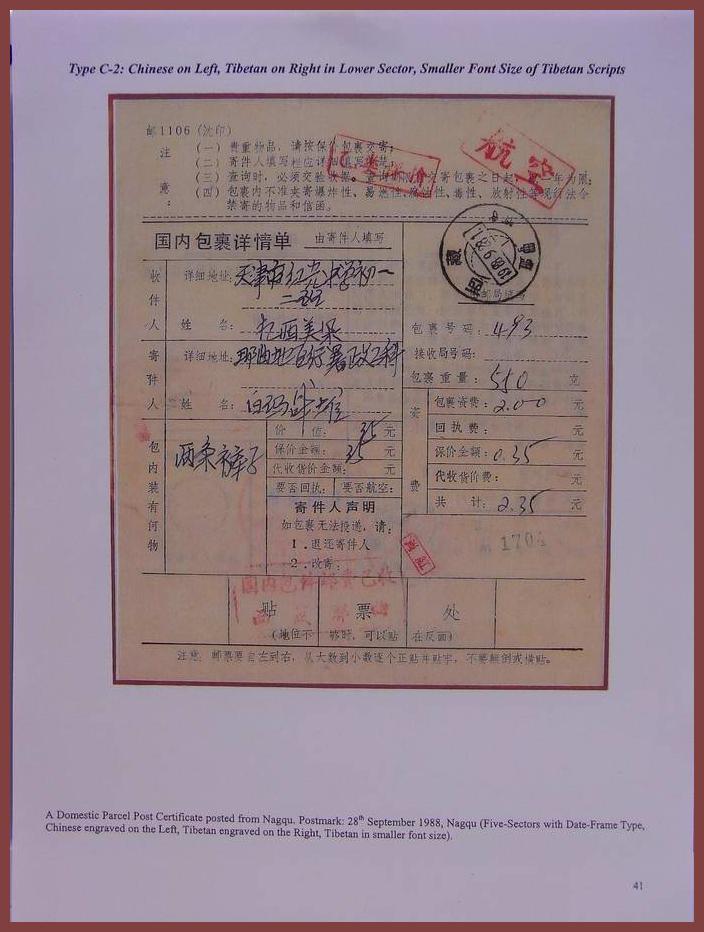 Type C-2: Chinese on Left, Tibetan on Right in Lower Sector, Smaller Font Size of Tibetan Scripts
邮1106(沈印)
注意:
(一) 贵重物品,请按保价包裹交寄;
(二) 寄件人填写栏应详细填写清楚;
(三) 查询时,必须交验收据。查询期从交寄包裹之日起,年为限;
(四) 包裹内不准夹寄爆炸性、易燃性、腐蚀性、毒性、放射性等现行法令
禁寄的物品和信函。
航空
国内包裹详情单 由寄件人填写
收件人
详细地址: 天津市红光中学初一
二班
姓 名:
西藏
寄件人
详细地址: 那曲地区行署政工科
姓 名: 白玛
包裹号码: 493
接收局号码:
包裹重量: 550 克
资费
包裹资费: 2.00 元
回执费: 元
保价金额: 0.35 元
代收货价费: 元
共 计: 2.35 元
包内装有何物
两条裤子
价 值: 35 元
保价金额: 35 元
代收货价金额: 元
要否回执: 要否航空:
寄件人声明
如包裹无法投递,请:
1.退还寄件人
2.改寄:
国内包件邮资已收
贴 票 处
(地位不够时,可以贴在反面)
注意:邮票要自左到右,从大数到小数逐个正贴并贴牢,不要颠倒或横贴。
A Domestic Parcel Post Certificate posted from Nagqu. Postmark: 28th September 1988, Nagqu (Five-Sectors with Date-Frame Type,
Chinese engraved on the Left, Tibetan engraved on the Right, Tibetan in smaller font size).
41